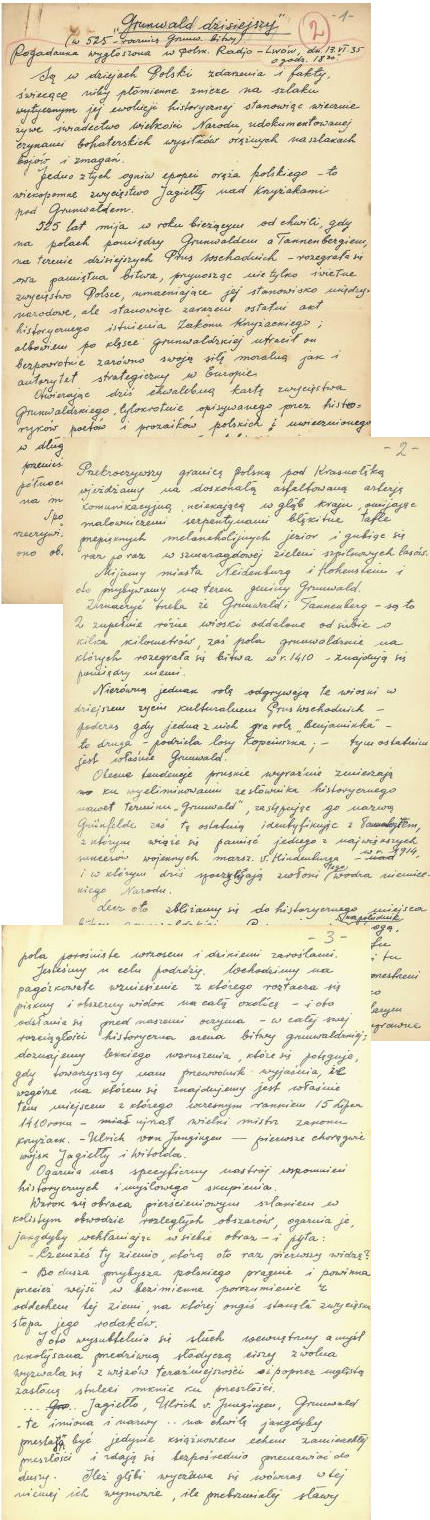 "Grunwald dzisiejszy"
(w 525 roczn. Grunw. bitwy)
2
-1-
Pogadanka wygłoszona w Polsk. Radjo - Lwów, dn. 13.VI.35
o godz. 18
Są w dziejach Polski zdarzenia i fakty,
świecące niby płomienne znicze na szlaku
wytycznym jej ewolucji historycznej stanowiąc wiecznie
żywe świadectwo wielkości Narodu, udokumentowanej
czynami bohaterskich wysiłków orężnych na szlakach
bojów i zmagań.
Jedno z tych ogniw epopei oręża polskiego - to
wiekopomne zwycięstwo Jagiełły nad Krzyżakami
pod Grunwaldem.
525 lat mija w roku bieżącym od chwili, gdy
na polach pomiędzy Grunwaldem a Tannenbergiem,
na terenie dzisiejszych Prus Wschodnich - rozegrała się
owa pamiętna bitwa, przynosząc nie tylko świetne
zwycięstwo Polsce, umacniające jej stanowisko między-
narodowe, ale stanowiąc zarazem ostatni akt
historycznego istnienia Zakonu Krzyżackiego;
albowiem po klęsce grunwaldzkiej utracił on
bezpowrotnie zarówno swoją siłę moralną jak i
autorytet strategiczny w Europie.
Otwierając dziś chwalebną kartę zwycięstwa
Grunwaldzkiego, tylokrotnie opisywanego przez histo-
ryków poetów i prozaików polskich i uwiecznionego
w dług
przenies
północ
na m
Spo
rzeczywi
ono ob
-2-
Przekroczywszy granicę polską pod Krasnołąką
wjeżdżamy na doskonałą asfaltowaną arterję
komunikacyjną, uciekającą w głąb kraju, omijając
malowniczemi serpentynami błękitne tafle
przepięknych melancholijnych jezior i gubiąc się
raz po raz w szmaragdowej zieleni szpilkowych lasów.
Mijamy miasta Neidenburg i Hohenstein i
oto przybywamy na teren gminy Grunwald.
Zaznaczyć trzeba że Grunwald i Tannenberg - są to
2 zupełnie różne wioski oddalone od siebie o
kilka kilometrów, zaś pola grunwaldzkie na
których rozegrała się bitwa w r. 1410 - znajdują się
pomiędzy niemi.
Nierówną jednak rolę odgrywają te wioski w
dziejszem życiu kulturalnem Prus Wschodnich -
podczas gdy jedna z nich gra rolę "Benjaminka" -
to druga - podziela losy Kopciuszka; - tym ostatnim
jest właśnie Grunwald.
Obecne tendencje pruskie wyraźnie zmierzają
ku wyeliminowaniu ze słownika historycznego
nawet terminu "Grunwald", zastępując go nazwą
Grünfelde zaś tę ostatnią identyfikując z
z którym wiąże się pamięć jednego z największych
sukcesów wojennych marsz. v. Hindenburga w r. 1914,
i w którym dziś spoczywają zwłoki tego wodza niemiec-
kiego Narodu.
Lecz oto zbliżamy się do historycznego miejsca
-3-
pola porośnięte wrzosem i dzikiemi zaroślami.
Jesteśmy u celu podróży. Wchodzimy na
pagórkowate wzniesienie z którego roztacza się
piękny i obszerny widok na całą okolicę - i oto
odsłania się przed naszemi oczyma - w całej swej
rozciągłości historyczna arena bitwy grunwaldzkiej;
doznajemy lekkiego wzruszenia, które się potęguje,
gdy towarzyszący nam przewodnik - wyjaśnia, że
wzgórze na którem się znajdujemy jest właśnie
tem miejscem z którego wczesnym rankiem 15 lipca
1410 roku - miał ujrzał wielki mistrz zakonu
krzyżack. - Ulrich von Jungingen - pierwsze chorągwie
wojsk Jagiełły i Witolda.
Ogarnia nas specyficzny nastrój wspomnień
historycznych i myślowego skupienia.
Wzrok się obraca pierścieniowym szlakiem w
kolistym obwodzie rozległych obszarów, ogarnia je,
jakgdyby wchłaniając w siebie obraz - i pyta:
- Czemżeś ty ziemio, którą oto raz pierwszy widzę?
- Bo dusza przybysza polskiego pragnie i powinna
przecież wejść w bezimienne porozumienie z
oddechem tej ziemi, na której ongiś stanęła zwycięska
stopa jego rodaków.
I oto wysubtelnia się słuch wewnętrzny a myśl
ukołysana przedziwną słodyczą ciszy zwolna
wyzwala się z więzów teraźniejszości i poprzez mglistą
zasłonę stuleci mknie ku przeszłości.
.... Jagiełło, Ulrich v. Jungingen, Grunwald
- te imiona i nazwy .. na chwilę jakgdyby
przestają być jedynie książkowem echem zamierzchłej
przeszłości i zdają się bezpośrednio przemawiać do
duszy. Ileż głębi wyczuwa się wówczas w tej
niemej ich wymowie, ile przebrzmiałej sławy